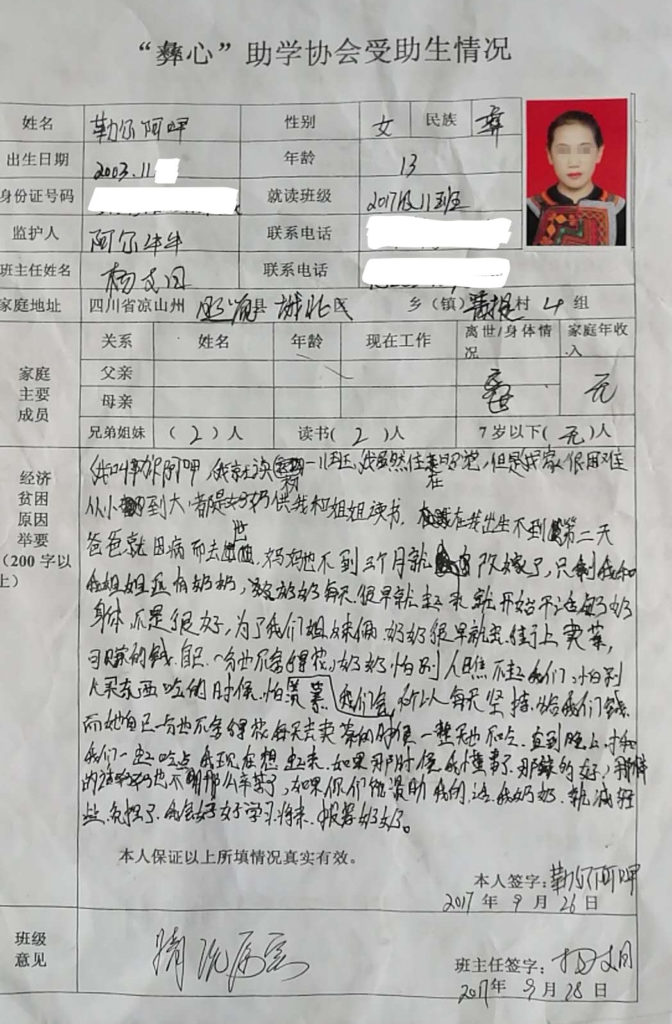 “彝心”助学协会受助生情况
姓名 勒尔阿呷 性别 女 民族 彝
出生日期 2003.11 年龄 13
身份证号码 就读班级 2017级11班
监护人 阿尔牛牛 联系电话
班主任姓名 杨文 联系电话
家庭地址 四川省凉山州 县 城北 乡(镇) 村 4 组
家庭主要成员 关系 姓名 年龄 现在工作 离世/身体情况 家庭年收入
父亲 离世 无
母亲
兄弟姐妹 (2)人 读书(2)人 7岁以下(无)人
经济贫困原因举要(200字以上)
我叫勒尔阿呷,我就读 一班,我虽然住在 ,但是我家很困难
从小到大,都是奶奶供我和姐姐读书, 在我出生不到第二天
爸爸就因病而去世,妈妈也不到三个月就改嫁了,只剩我和
我姐姐还有奶奶, 奶奶每天很早就起来就开始干活,奶奶
身体不是很好,为了我们姐妹俩,奶奶很早就去街上卖菜,
赚的钱自己一分也不舍得花,奶奶怕别人瞧不起我们,怕别
人买东西吃的时候,怕我们会羡慕,所以每天坚持给我们钱
而她自己一分也不舍得花每天去卖菜的时候一整天也不吃,直到晚上才和
我们一起吃点,我现在想起来,如果那时候我懂事了,那该多好,
的话奶奶也不用那么辛苦了,如果你们能资助我的话,我奶奶就减轻
些负担了,我会好好学习,将来报答奶奶。
本人保证以上所填情况真实有效。
本人签字:勒尔阿呷
2017年9月26日
班级意见 情况属实
班主任签字:杨文
2017年9月28日